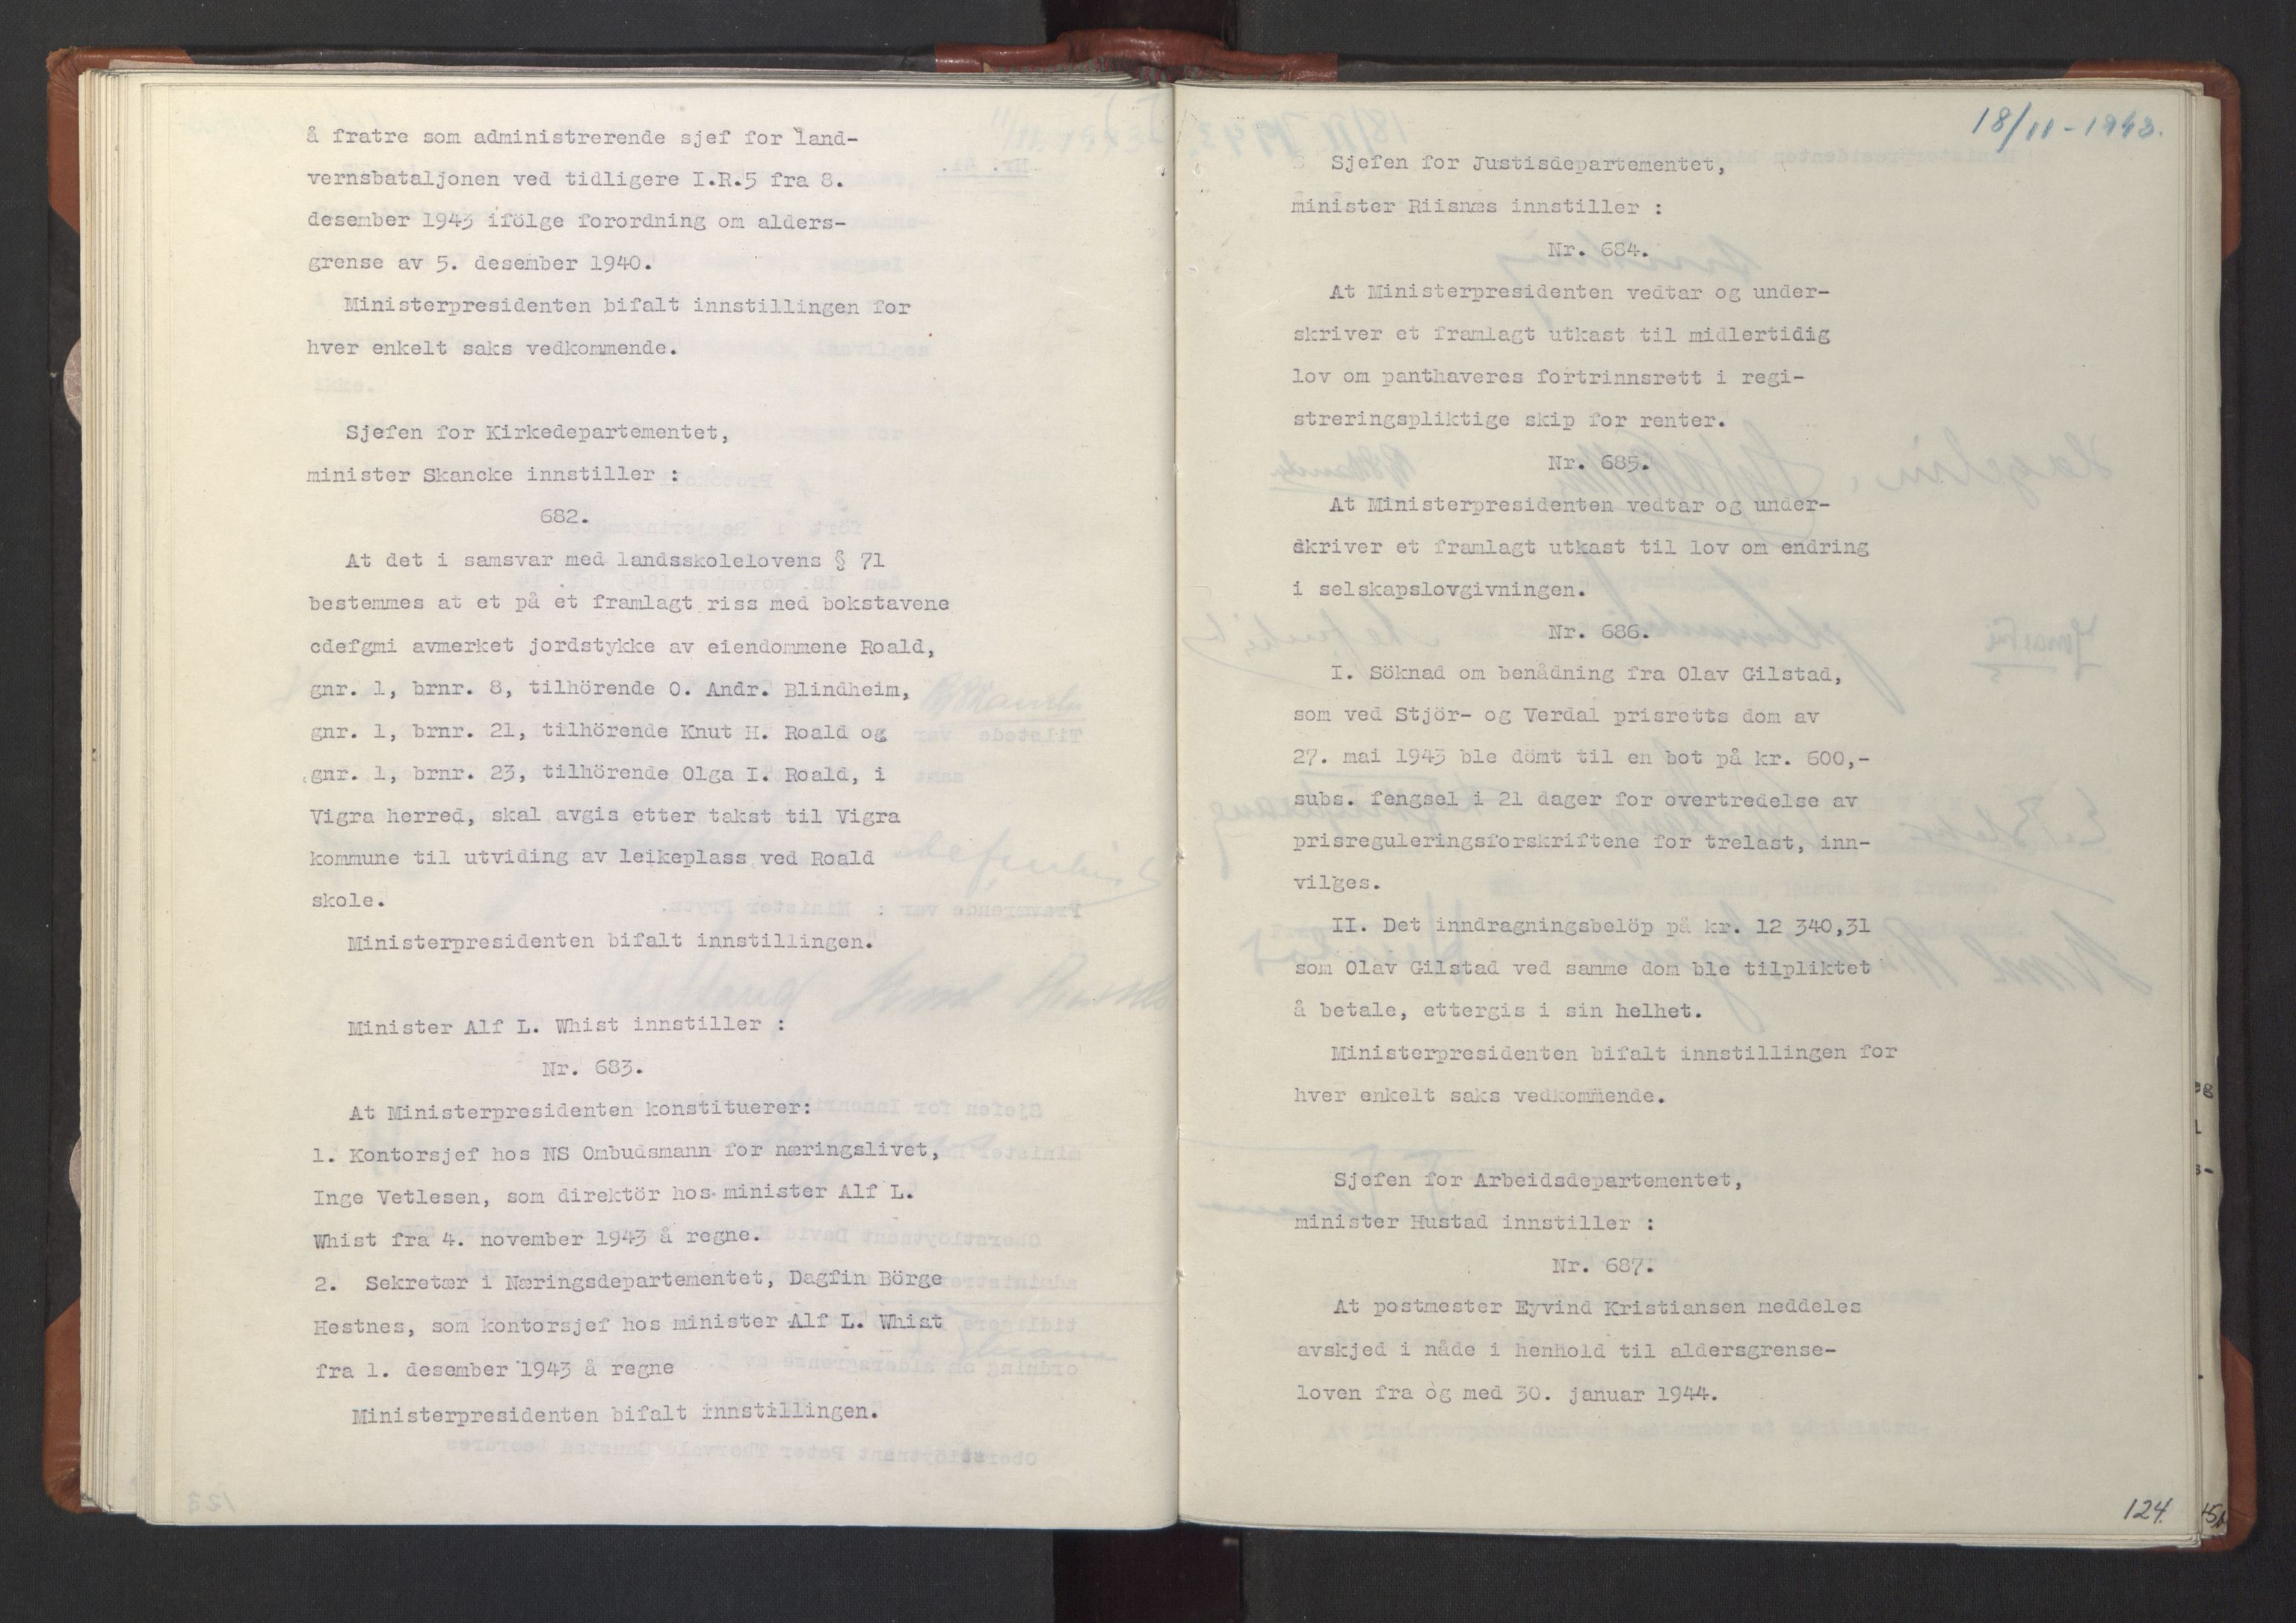 å fratre som administrerende sjef for land-
vernsbataljonen ved tidligere I.R.5 fra 8.
desember 1943 ifölge forordning om alders-
grense av 5. desember 1940.
Ministerpresidenten bifalt innstillingen for
hver enkelt saks vedkommende.
Sjefen for Kirkedepartementet,
minister Skancke innstiller :
682.
At det i samsvar med landsskolelovens § 71
bestemmes at et på et framlagt riss med bokstavene
cdefgmi avmerket jordstykke av eiendommene Roald,
gnr. 1, brnr. 8, tilhörende O. Andr. Blindheim,
gnr. 1, brnr. 21, tilhörende Knut H. Roald og
gnr. 1, brnr. 23, tilhörende Olga I. Roald, i
Vigra herred, skal avgis etter takst til Vigra
kommune til utviding av leikeplass ved Roald
skole.
Ministerpresidenten bifalt innstillingen.
Minister Alf L. Whist innstiller :
Nr. 683.
At Ministerpresidenten konstituerer:
1. Kontorsjef hos NS Ombudsmann for næringslivet,
Inge Vetlesen, som direktör hos minister Alf L.
Whist fra 4. november 1943 å regne.
2. Sekretær i Næringsdepartementet, Dagfin Börge
Hestnes, som kontorsjef hos minister Alf L. Whist
fra 1. desember 1943 å regne
Ministerpresidenten bifalt innstillingen.
18/11-1943.
Sjefen for Justisdepartementet,
minister Riisnæs innstiller :
Nr. 684.
At Ministerpresidenten vedtar og under-
skriver et framlagt utkast til midlertidig
lov om panthaveres fortrinnsrett i regi-
streringspliktige skip for renter.
Nr. 685.
At Ministerpresidenten vedtar og under-
skriver et framlagt utkast til lov om endring
i selskapslovgivningen.
Nr. 686.
I. Söknad om benådning fra Olav Gilstad,
som ved Stjör- og Verdal prisretts dom av
27. mai 1943 ble dömt til en bot på kr. 600,-
subs. fengsel i 21 dager for overtredelse av
prisreguleringsforskriftene for trelast, inn-
vilges.
II. Det inndragningsbelöp på kr. 12 340,31
som Olav Gilstad ved samme dom ble tilpliktet
å betale, ettergis i sin helhet.
Ministerpresidenten bifalt innstillingen for
hver enkelt saks vedkommende.
Sjefen for Arbeidsdepartementet,
minister Hustad innstiller :
Nr. 687.
At postmester Eyvind Kristiansen meddeles
avskjed i nåde i henhold til aldersgrense-
loven fra og med 30. januar 1944.
124.